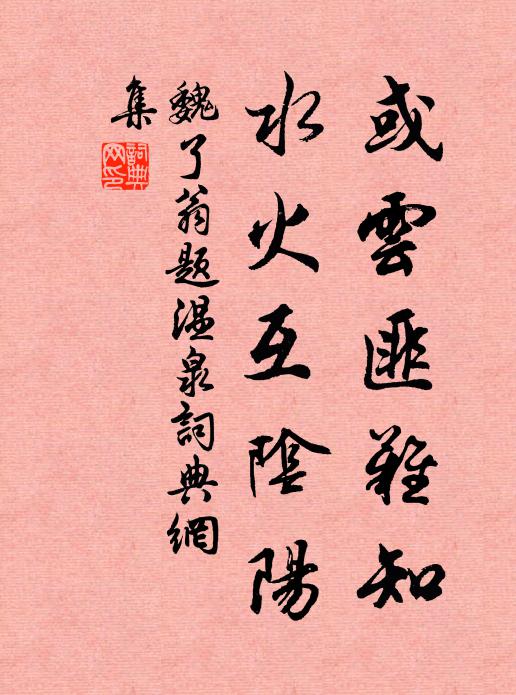 或雲匪難知
水火互陰陽
魏了翁題溫泉詞典網
集
詞典
网印